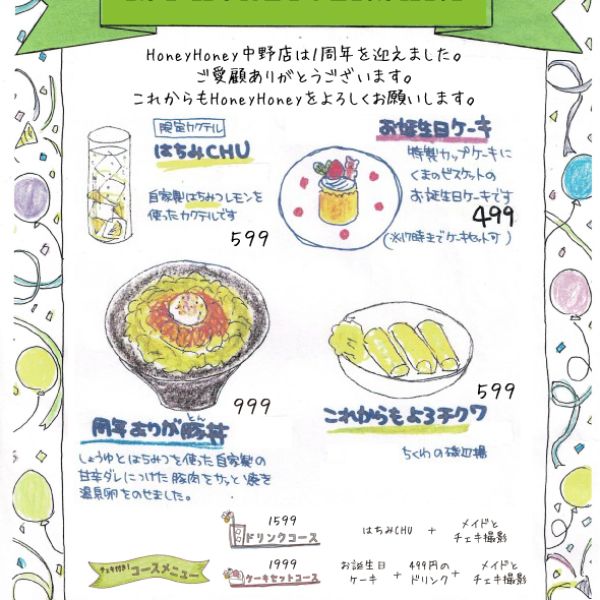 HoneyHoney中野店は1周年を迎えました。
ご愛顧ありがとうございます。
これからもHoneyHoneyをよろしくお願いします。
限定カクテル
はちみCHU
自家製はちみつレモンを
使ったカクテルです
599
お誕生日ケーキ
特製カップケーキに
くまのビスケットの
お誕生日ケーキです
499
(※17時までケーキセット可)
999
周年ありが豚丼
とん
しょうゆとはちみつを使った自家製の
甘辛ダレにつけた豚肉をサッと焼き
温泉卵をのせました。
599
これからもよろチクワ
ちくわの磯辺揚
チェキ付き!
コースメニュー
1599
ドリンクコース
はちみCHU + メイドと
チェキ撮影
1999
ケーキセットコース
お誕生日
ケーキ + 499円の
ドリンク + メイドと
チェキ撮影